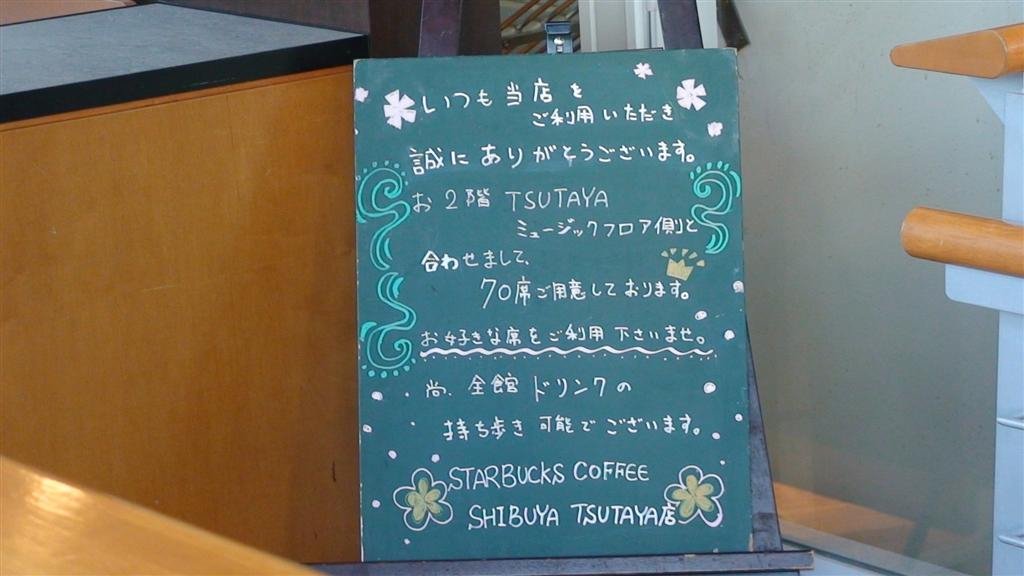 いつも当店を
ご利用いただき
誠にありがとうございます。
お2階 TSUTAYA
ミュージックフロア側と
合わせまして、
70席ご用意しております。
お好きな席をご利用下さいませ。
尚、全館ドリンクの
持ち歩き可能でございます。
STARBUCKS COFFEE
SHIBUYA TSUTAYA店